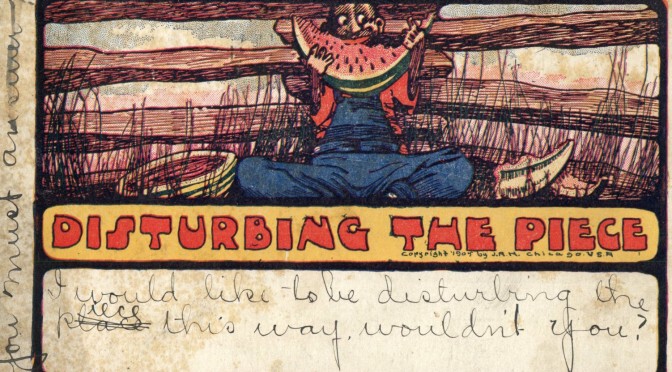 DISTURBING THE PIECE
Copyright 1907 by J.R.M. Chicago. USA
I would like to be disturbing the
piece this way, wouldn't you?
you must answer